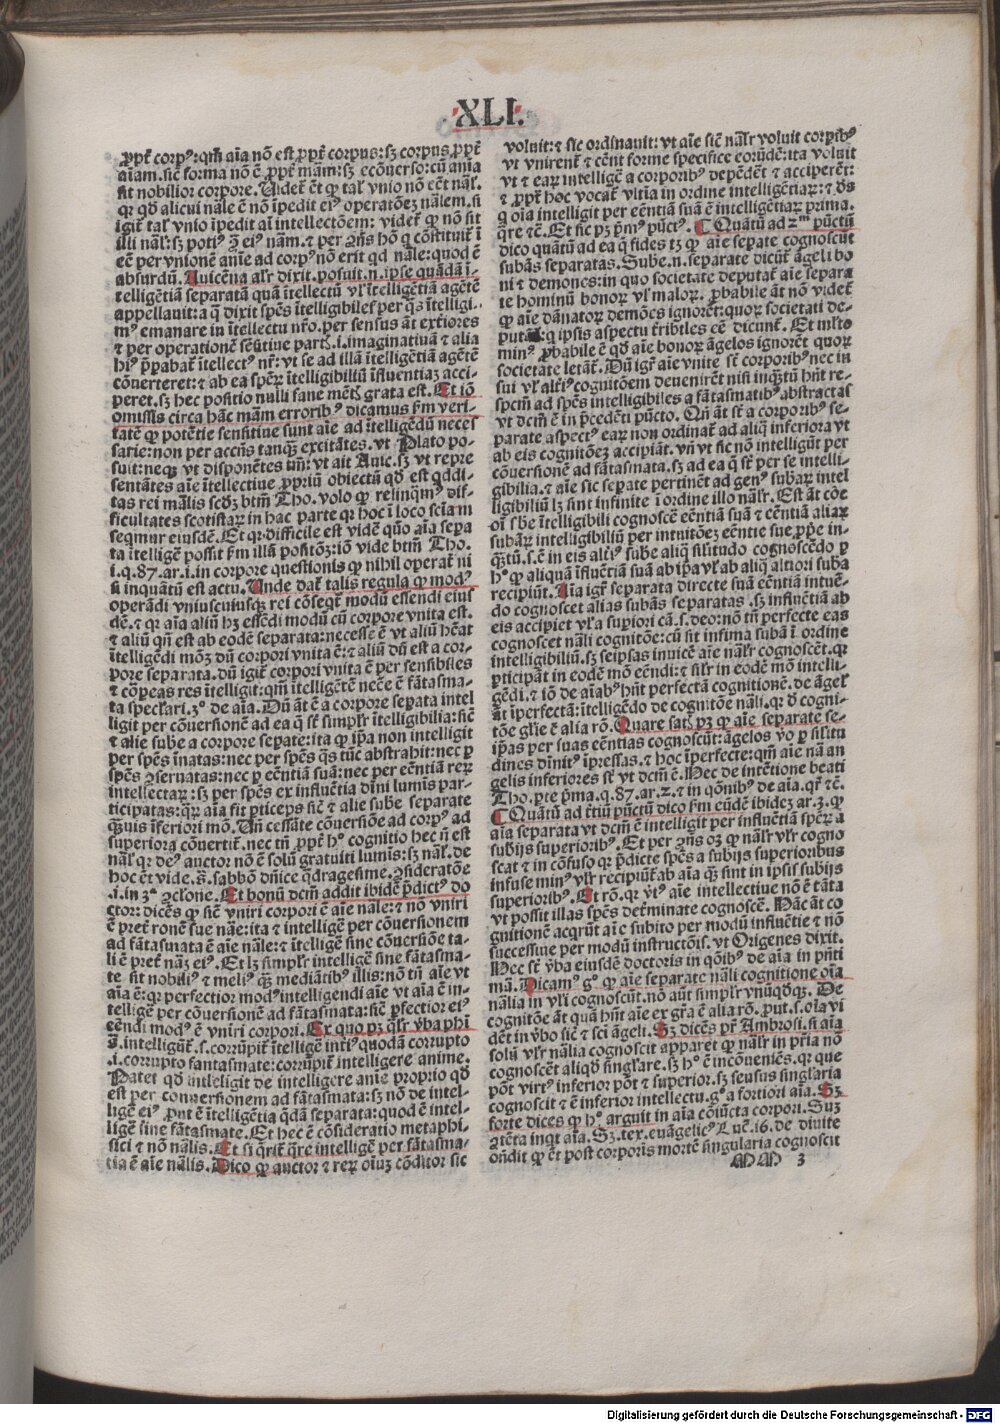 XLI.
ꝓpt̄ corpꝰ: qm̄ aīa nō est ꝓpt̄ corpus: sꝫ corpus ꝓpt̄
aīam. sic̄ forma nō ē ꝓpt̄ mām: sꝫ ecōuerso: cū aīa
sit nobilior corpore. Videt̄ ēt ꝙ talꝭ vnio nō eēt nāl.
qꝛ qd̄ alicui nāle ē nō īpedit eiꝰ operatōeꝫ nālem. si
igit̄ talꝭ vnio īpedit aī intellectōem: videt̄ ꝙ nō sit
illi nāl: sꝫ potiꝰ ꝯ̄ eiꝰ nām. ⁊ per ꝯn̄s hō q cōstituit̄ ī
eē per vnionē anīe ad corpꝰ nō erit qd nāle: quod ē
absurdū. Auicēna alr̄ dixit. posuit .n. ipse quādā ī-
telligētiā separatā quā ītellectū vl̓ ītelligētiā agētē
appellauit: a q̄ dixit spēs ītelligibiles per qs ītelligi-
mꝰ emanare in ītellectu nr̄o. per sensus āt exteriores
⁊ per operationē sēsitiue partꝭ .i. imaginatiuā ⁊ alia
hꝰ p̄parat̄ ītellectꝰ nr̄: vt se ad illā ītelligētiā agētē
cōuerteret: ⁊ ab ea spērꝝ ītelligibiliū īfluentiaꝫ acci-
peret. sꝫ hec positio nulli sane mētꝭ grata est. Et iō
omissis circa hāc mām erroribꝰ dicamus ẜm veri-
tatē ꝙ potētie sensitiue sunt aīe ad ītelligēdū neces
sarie: non per accn̄s tanqꝫ excitātes. vt Plato po-
suit: neqꝫ vt disponētes tm̄: vt ait Auic. sꝫ vt repre
sentātes aīe ītellectiue ꝓpriū obiectū qd̄ est qddi-
tas rei mālis scd̓ꝫ btm̄ Tho. volo ꝙ relinqmꝰ dif-
ficultates scotistaꝝ in hac parte qꝛ hoc ī loco sciam
seqmur eiusdē. Et qꝛ difficile est vidē quō aīa sepa
ta ītelligē possit ẜm illā positōꝫ: iō vide btm̄ Tho.
i. q. 87. ar. i. in corpore questionis ꝙ nihil operat̄ ni
si inquātū est actu. Vnde dat̄ talis regula ꝙ modꝰ
operādi vniuscuiusqꝫ rei cōseqt̄ modū essendi eius
dē. ⁊ qꝛ aīa aliū hꝫ essēdi modū cū corpore vnita est.
⁊ aliū qn̄ est ab eodē separata: necesse ē vt aliū hēat
ītelligēdi mōꝫ dū corpori vnita ē: ⁊ aliū dū est a cor-
pore separata. dū igit̄ corpori vnita ē per sensibiles
⁊ cōpeas res ītelligit: qm̄ ītelligētē necē ē fātasma-
ta specl̓ari. 3ꝰ de aīa. Dū āt ē a corpore sepata intel
ligit per cōuersionē ad ea q̄ sūt simplr̄ ītelligibilia: sic̄
⁊ alie sube a corpore sepate: ita ꝙ ip̄a non intelligit
per spēs īnatas: nec per spēs qs tūc abstrahit: nec ꝑ
spēs ꝯseruatas: nec ꝑ eēntiā suā: nec per eēntiā reꝝ
intellectaꝝ: sꝫ per spēs ex influētia diuī lumīs par-
ticipatas: quaꝝ aīa fit pticeps sic̄ ⁊ alie sube separate
qꝫuis īferiori mō. Vn̄ cessāte cōuersiōe ad corpꝰ ad
superiora cōuertit̄. nec tn̄ ꝓpt̄ hꝰ cognitio hec n̄ est
nāl qꝛ deꝰ auctor nō ē solū gratuiti lumīs: sꝫ nāl. de
hoc ēt vide. s. sabbō dn̄ice q̄dragesime. ꝯsideratōe
.i. in 3ª ꝯclone. Et bonū dcm̄ addit ibidē p̄dictꝰ do
ctor: dicēs ꝙ sic̄ vniri corpori ē aīe nāle: ⁊ nō vniri
ē pret̄ ronē sue nāe: ita ⁊ intelligē per cōuersionem
ad fātasmata ē aīe nāle: ⁊ ītelligē sine cōuersiōe ta-
li ē pret̄ nāꝫ eiꝰ. Et lꝫ simplr̄ intelligē sine fātasma-
te sit nobiliꝰ ⁊ meliꝰ qꝫ mediātibꝰ illis: nō tn̄ aīe vt
aīa ē: qꝛ perfectior modꝰ intelligendi aīe vt aīa ē in-
telligē per cōuersionē ad fātasmata: sic̄ pfectior eiꝰ
eēndi modꝰ ē vniri corpori. Ex quo pꝫ qlr̄ ꝟba phī
.intelligūt̄ .s. corrūpit̄ ītelligē intꝰ quodā corrupto
.i. corrupto fantasmate: corrūpit̄ intelligere anime.
Patet qd̄ intelegit de intelligere anīe proprio qd̄
est per conuersionem ad fātasmata: sꝫ nō de intel-
ligē eiꝰ prout ē ītelligētia q̄dā separata: quod ē intel-
ligē sine fātasmate. Et hec ē cōsideratio metaphi-
sici ⁊ nō nālis. Et si q̄rit̄ q̄re intelligē per fātasma-
tia ē aīe nālis. Dico ꝙ auctor ⁊ rerꝝ oīuꝫ cōditor sic
voluit: ⁊ sic ordinauit: vt aīe sic̄ nālr̄ voluit corpibꝰ
vt vnirent̄ ⁊ eēnt forme specifice eorūdē: ita voluit
vt ⁊ eaꝝ intelligē a corporibꝰ depēdēt ⁊ acciperēt:
⁊ ꝓpt̄ hoc vocat̄ vltīa in ordine intelligētiaꝝ: ⁊ ds̄
q oīa intelligit per eēntiā suā ē intelligētiaꝝ prima.
qre ⁊c̄. Et sic pꝫ pꝰmꝰ pūctꝰ. ¶ Quātū ad 2ᵐ pūctū
dico quātū ad ea q̄ fides tꝫ ꝙ aīe sepate cognoscūt
subās separatas. Sube .n. separate dicūt̄ āgeli bo
ni ⁊ demones: in quo societate deputat̄ aīe separa
te hominū bonoꝝ vl̓ maloꝝ. ꝓbabile āt nō videt̄
ꝙ aīe dānatoꝝ demōes ignorēt: quoꝝ societati de-
putāt̄: q ipsis aspectu tr̄ibiles eē dicunt̄. Et ml̓to
minꝰ ꝓbabile ē qd̄ aīe bonoꝝ āgelos ignorēt quoꝝ
societate letāt̄. Dū igr̄ aīe vnite st̄ corporibꝰ nec in
sui vl̓ altiꝰ cognitōem deuenirēt nisi inqꝫtū hn̄t re-
spcm̄ ad spēs intelligibiles a fātasmatibꝰ abstractas
vt dcm̄ ē in p̄cedēti pūcto. Qn̄ āt st̄ a corporibꝰ se-
parate aspectꝰ eaꝝ non ordinat̄ ad aliq̄ inferiora vt
ab eis cognitōeꝫ accipiāt. vn̄ vt sic nō intelligūt per
cōuersionē ad fātasmata. sꝫ ad ea q̄ st̄ per se intelli-
gibilia. ⁊ aīe sic sepate pertinēt ad genꝰ subaꝝ intel
ligibiliū lꝫ sint infinite ī ordine illo nālr̄. Est āt cōe
oī sbe ītelligibili cognoscē eēntiā suā ⁊ eēntiā aliaꝝ
subaꝝ intelligibiliū per intuitōeꝫ eēntie sue ꝓpe in-
qꝫtū .s. ē in eis altiꝰ sube aliq̄ sil̓itudo cognoscēdo ꝑ
hꝰ ꝙ aliquā īfluentiā suā ab ipā vl̓ ab aliq̄ altiori suba
recipiūt. Aīa igr̄ separata directe suā eēntiā intuē-
do cognoscet alias subās separatas. sꝫ influētiā ab
eis accipiet vl̓ a supiori cā .s. deo: nō tn̄ perfecte eas
cognoscet nāli cognitōe: cū sit infima subā ī ordine
intelligibiliū. sꝫ seipsas inuicē aīe nālr̄ cognoscēt. qꝛ
ꝑticipāt in eodē mō eēndi: ⁊ silr̄ in eodē mō intelli-
gēdi. ⁊ iō de aīabꝰ hn̄t perfectā cognitionē. de āgel̓
āt īperfectā: ītelligēdo de cognitōe nāli. qꝛ d̓ cogni-
tōe glīe ē alia rō. Quare satꝭ pꝫ ꝙ aīe separate se-
ip̄as per suas eēntias cognoscūt: āgelos ꝟo ꝑ sil̓itu
dines diuinitꝰ īpressas. ⁊ hoc īperfecte: qm̄ aīe nā an
gelis inferiores st̄ vt dcm̄ ē. Nec de intētione beati
Tho. pte p̄ma. q. 87. ar. 2. ⁊ in qōnibꝰ de aīa. qr̄ ⁊c̄.
¶ Quātū ad tr̄tiū pūctū dico ẜm eūdē ibidez ar. 3. ꝙ
aīa separata vt dcm̄ ē intelligit per influentiā spērꝝ a
subijs superioribꝰ. Et per ꝯn̄s oꝫ ꝙ nālr̄ vlr̄ cogno
scat ⁊ in cōfuso qꝛ p̄dicte spēs a subijs superioribus
infuse minꝰ vlr̄ recipiūt̄ ab aīa qꝫ sint in ipsis subijs
superioribꝰ. Et rō. qꝛ ꝟtꝰ aīe intellectiue nō ē tāta
vt possit illas spēs det̄minate cognoscē. Nāc āt co
gnitionē acqrūt aīe subito per modū influētie ⁊ nō
successiue per modū instructōis. vt Origenes dixit.
Nec st̄ ꝟba eiusdē doctoris in qōibꝰ de aīa in pn̄ti
mā. Dicamꝰ gꝰ ꝙ aīe separate nāli cognitione oīa
nālia in vlī cognoscūt. nō aūt simplr̄ vnūqd̄qꝫ. De
cognitōe āt quā hn̄t aīe ex gr̄a ē alia rō. put .s. oīa vi
dēt in ꝟbo sic̄ ⁊ sci āgeli. Sꝫ dicēs pr̄ Ambrosi. si aīa
solū vlr̄ nālia cognoscit apparet ꝙ nālr̄ in pr̄ia nō
cognoscēt aliqd̄ singl̓are. sꝫ hꝰ ē incōueniēs. qꝛ que
pōt virtꝰ inferior pōt ⁊ superior. sꝫ sensus sing̓laria
cognoscit ⁊ ē inferior intellectu. gꝰ a fortiori aīa. Sꝫ
forte dices ꝙ hꝰ arguit in aīa cōiūcta corpori. Suꝫ
ꝯtēta inqt aīa. Sꝫ .tex. euāgelicꝰ Luc̄. 16. de diuite
on̄dit ꝙ ēt post corporis mortē singularia cognoscit
MM 3
Digitalisierung gefördert durch die Deutsche Forschungsgemeinschaft - DFG